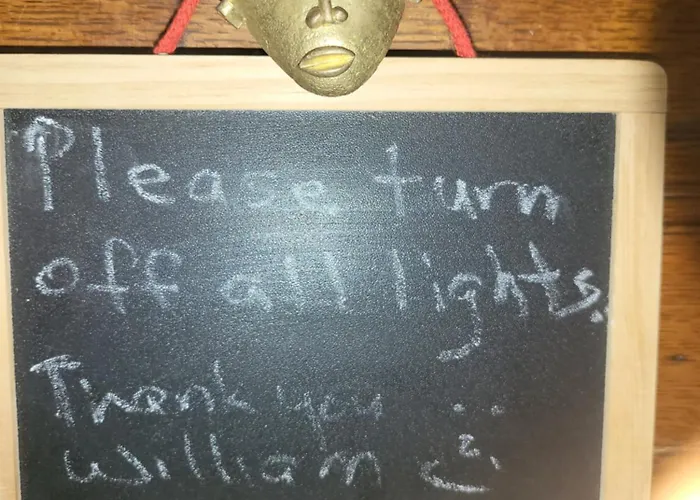 Please turn
off all lights.
Thank you
William